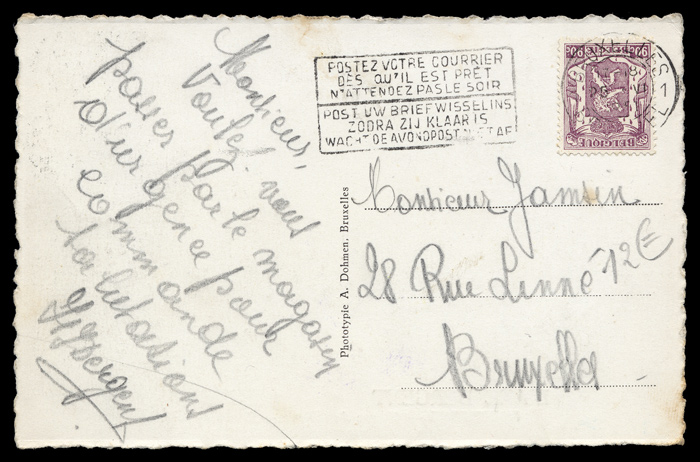 Monsieur,
Voulez vous
passer par le magasin
d'urgence pour
commande
Salutations
POSTEZ VOTRE COURRIER
DÈS QU'IL EST PRÊT
N'ATTENDEZ PAS LE SOIR
POST UW BRIEFWISSELING
ZODRA ZIJ KLAAR IS
WACHT DE AVONDPOST NIET AF
90c
BELGIQUE
Phototypie A. Dohmen, Bruxelles
Monsieur Jamin
28 Rue Linné
12€
Bruxelles